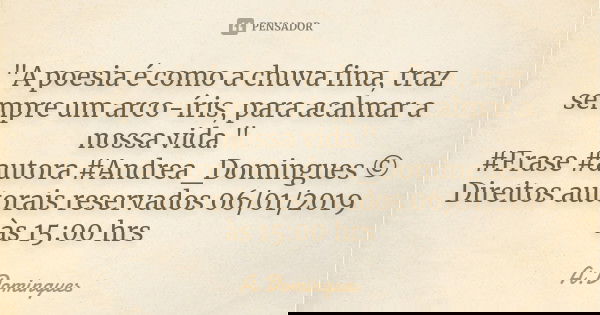 PENSADOR
"A poesia é como a chuva fina, traz
sempre um arco-íris, para acalmar a
nossa vida "
#Frase #autora #Andrea_Domingues ©
Direitos autorais reservados 06/01/2019
às 15:00 hrs
A. Domingues